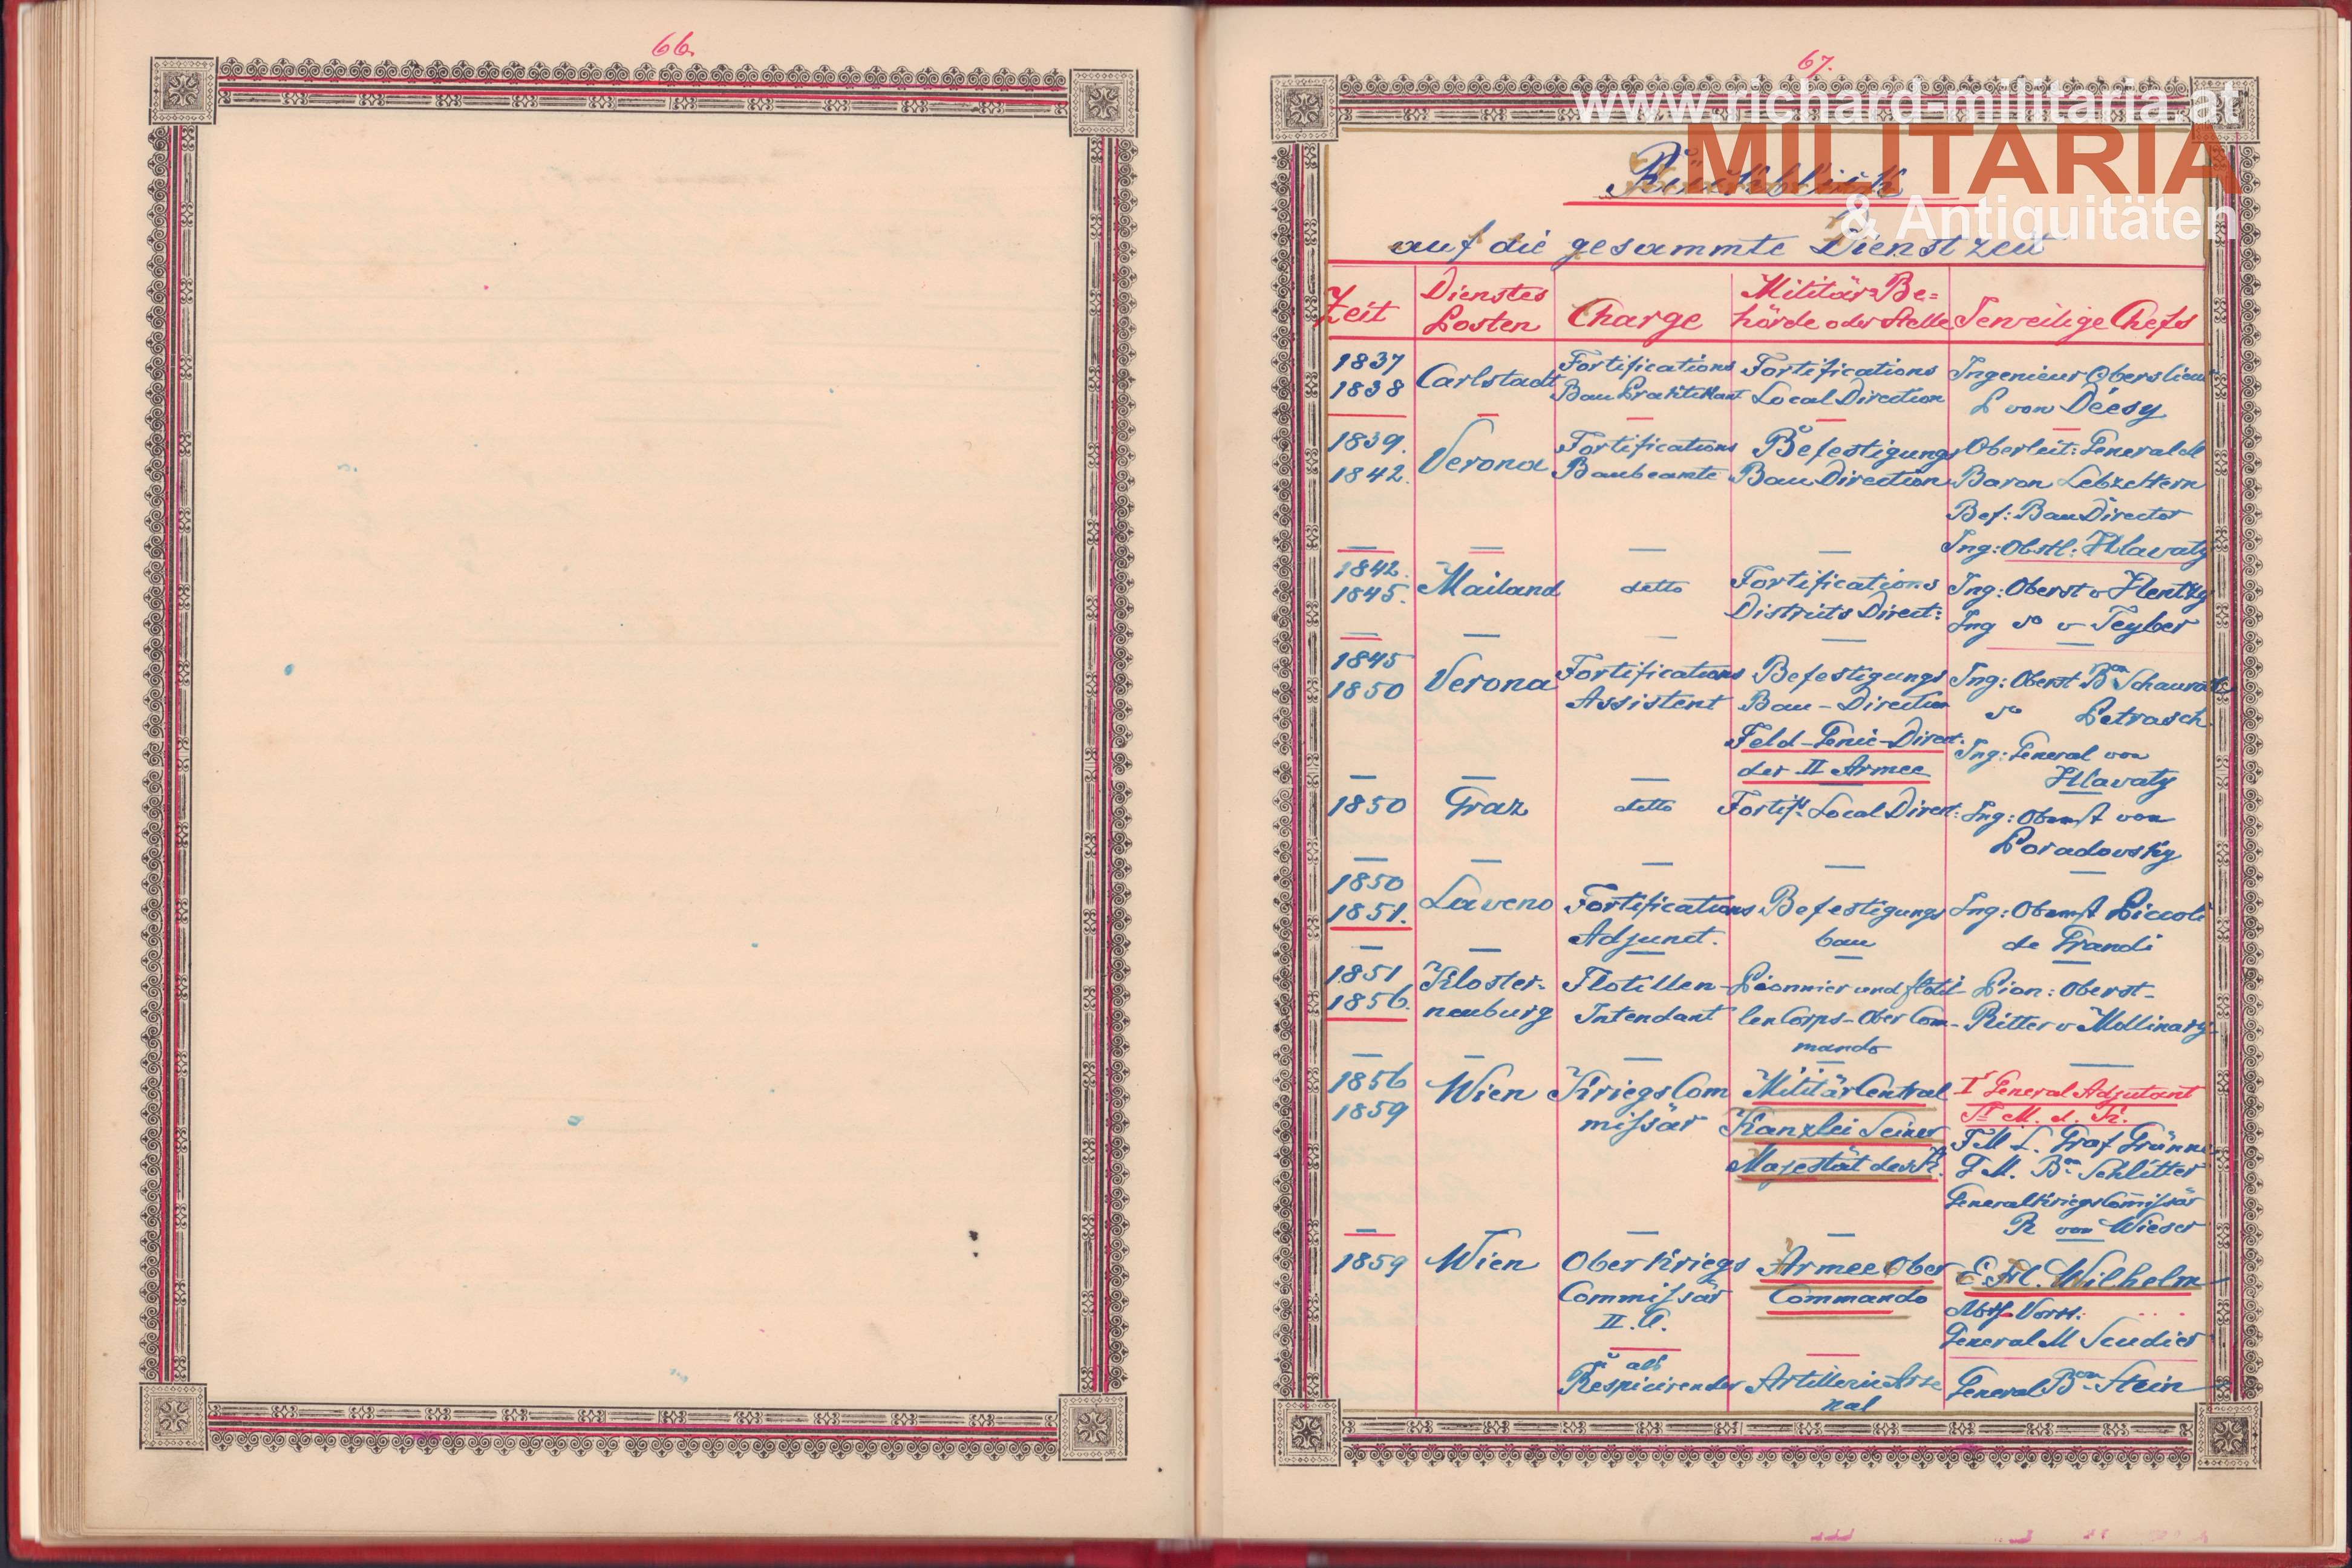 66.
67.
www.richard-militaria.at
MILITARIA
& Antiquitäten
Rückblick
auf die gesammte Dienstzeit
Zeit Dienstes Posten Charge Militär=Be= hörde oder Stelle Jeweilige Chefs
1837 Fortifications Fortifications Ingenieur Oberslieut
1838 Carlstadt Bau Praktikant Local Direction P von Déesy
1839. Fortifications Befestigungs Oberleit: General d
1842. Verona Baubeamte Bau Direction Baron Lebzeltern
Bef: Bau Director
Ing: Obstl: Hlavaty
1842. Mailand detto Fortifications Ing: Oberst v Hentzy
1845. Districts Direct: Ing do v Teyber
1845 Verona Fortifications Befestigungs Ing: Oberst Bon Schauroth
1850 Assistent Bau-Direction do Petrasch
Feld-Genie-Direct. Ing: General von
der II Armee Hlavaty
1850 Graz detto Fortif: Local Direct: Ing: Oberst von
Poradovsky
1850 Laveno Fortifications Befestigungs Ing: Oberst Piccoli
1851. Adjunct. bau de Grandi
1851 Kloster- Flotillen- Pionnier und Flotil- Pion: Oberst-
1856. neuburg Intendant len Corps-Ober Com- Ritter v Mollinary
mando
1856 Wien Kriegs Com Militär Central I General Adjutant
1859 missär Kanzlei Seiner Sr M. d. K.
Majestät des K. F M L. Graf Grünne
G M. Bn Schlitter
General Kriegs Com̄issär
R von Wieser
1859 Wien Ober Kriegs Armee Ober E. H. Wilhelm
Commissär Commando Abth Vorst:
II. C. General M Scudier
als
Respicirender Artillerie Arse General Bon Stein
nal